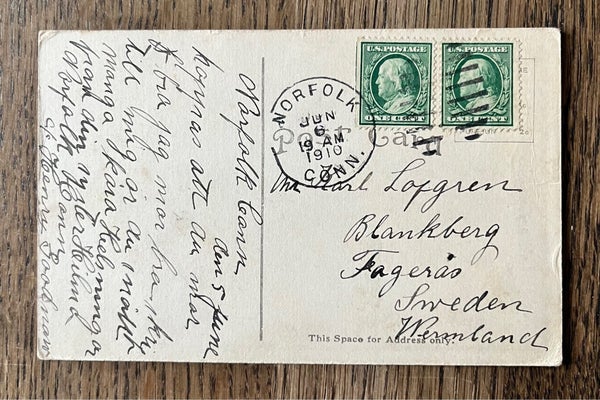 Norfolk Conn.
den 5 June
hoppas att du mår
bra jag mår bra, skv
till mig är du snällt
många kära Helsningar
från din syster
Norfolk Conn
c/o Henry
U.S. POSTAGE
ONE CENT
U.S. POSTAGE
ONE CENT
NORFOLK
JUN
6
9 AM
1910
CONN.
Post Card
Karl Lofgren
Blankberg
Fagerås
Sweden
Wermland
This Space for Address only.